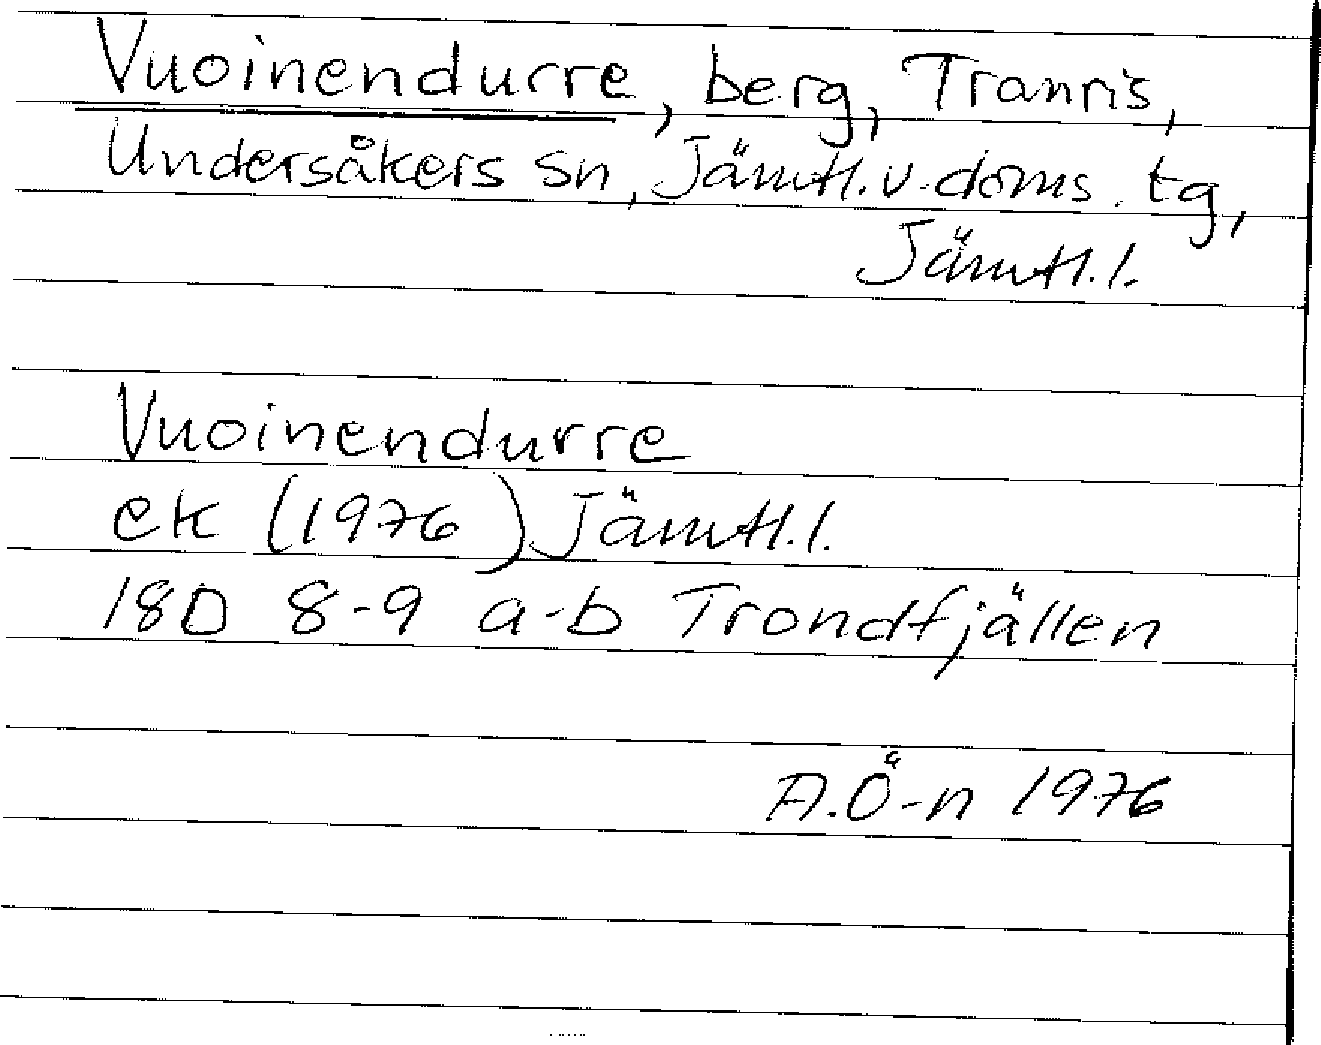 Vuoinendurre, berg, Tranris,
Undersåkers sn, Jämtl. v. doms. tg,
Jämtl. l.
Vuoinendurre
ek (1976) Jämtl. l.
18D 8-9 a-b Trondfjällen
A.Ö-n 1976